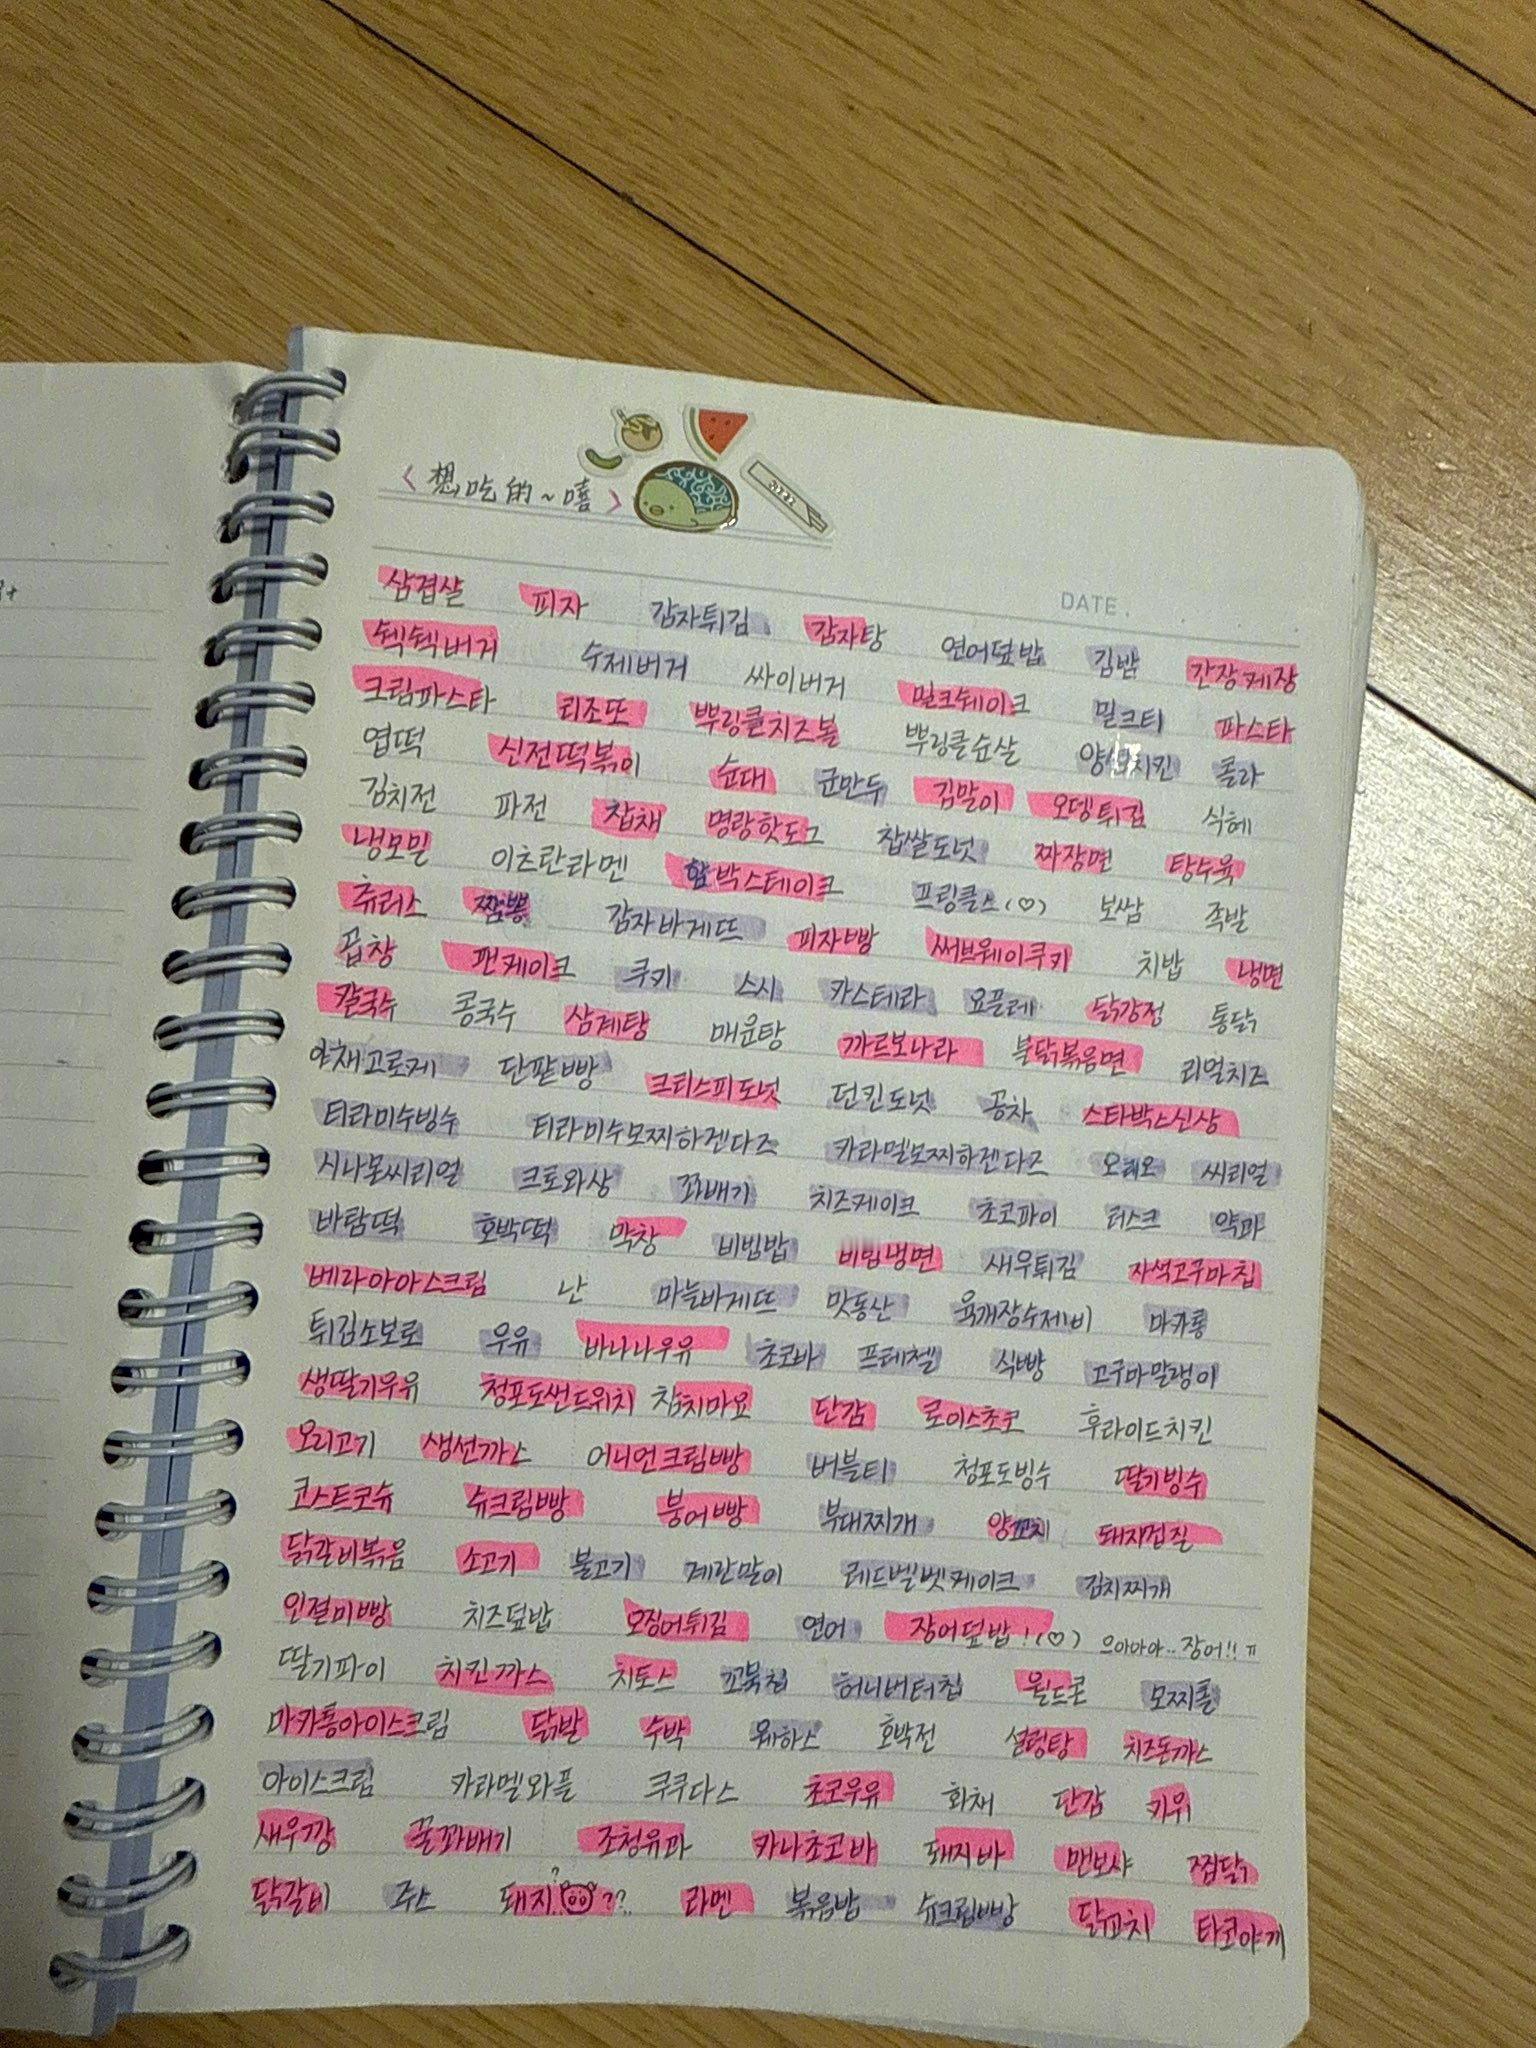 < 想吃的~嘻 >
DATE.
삼겹살 피자 감자튀김 감자탕 연어덮밥 김밥 간장게장
쉑쉑버거 수제버거 싸이버거 밀크쉐이크 밀크티 파스타
크림파스타 리조또 뿌링클치즈볼 뿌링클순살 치킨 콜라
엽떡 신전떡볶이 순대 군만두 김말이 오뎅튀김 식혜
김치전 파전 잡채 명랑핫도그 찹쌀도넛 짜장면 탕수육
냉모밀 이츠란라멘 함박스테이크 프링클스(♡) 보쌈 족발
츄러스 짬뽕 감자바게뜨 피자빵 써브웨이쿠키 치밥 냉면
곱창 팬케이크 쿠키 스시 카스테라 요플레 닭강정 통닭
칼국수 콩국수 삼계탕 매운탕 까르보나라 불닭볶음면 리얼치즈
야채고로케 단팥빵 크리스피도넛 던킨도넛 공차 스타박스신상
티라미수빙수 티라미수모찌하겐다즈 카라멜모찌하겐다즈 오레오 씨리얼
시나몬씨리얼 크로와상 꽈배기 치즈케이크 초코파이 러스크 약과
바람떡 호박떡 막창 비빔밥 비빔냉면 새우튀김 자색고구마칩
베라아아스크림 난 마늘바게뜨 맛동산 육개장수제비 마카롱
튀김소보로 우유 바나나우유 초코바 프레첼 식빵 고구마말랭이
생딸기우유 청포도썬드위치 참치마요 단감 로이스초코 후라이드치킨
오리고기 생선까스 어니언크림빵 버블티 청포도빙수 딸기빙수
코스트코슈 슈크림빵 붕어빵 부대찌개 양꼬치 돼지껍질
닭갈비볶음 소고기 불고기 계란말이 레드벨벳케이크 김치찌개
왼결미빵 치즈덮밥 오징어튀김 연어 장어덮밥!(♡) 으아아아..장어!!ㅠ
딸기파이 치킨까스 치토스 꼬북칩 허니버터칩 월드콘 모찌롤
마카롱아이스크림 닭발 수박 웨하스 호박전 설렁탕 치즈돈까스
아이스크림 카라멜와플 쿠쿠다스 초코우유 화채 단감 키위
새우깡 꿀꽈배기 조청유과 카나초코바 돼지바 멘보샤 찜닭
닭갈비 쥬스 돼지??? 라멘 볶음밥 슈크림빵 닭꼬치 타코야끼